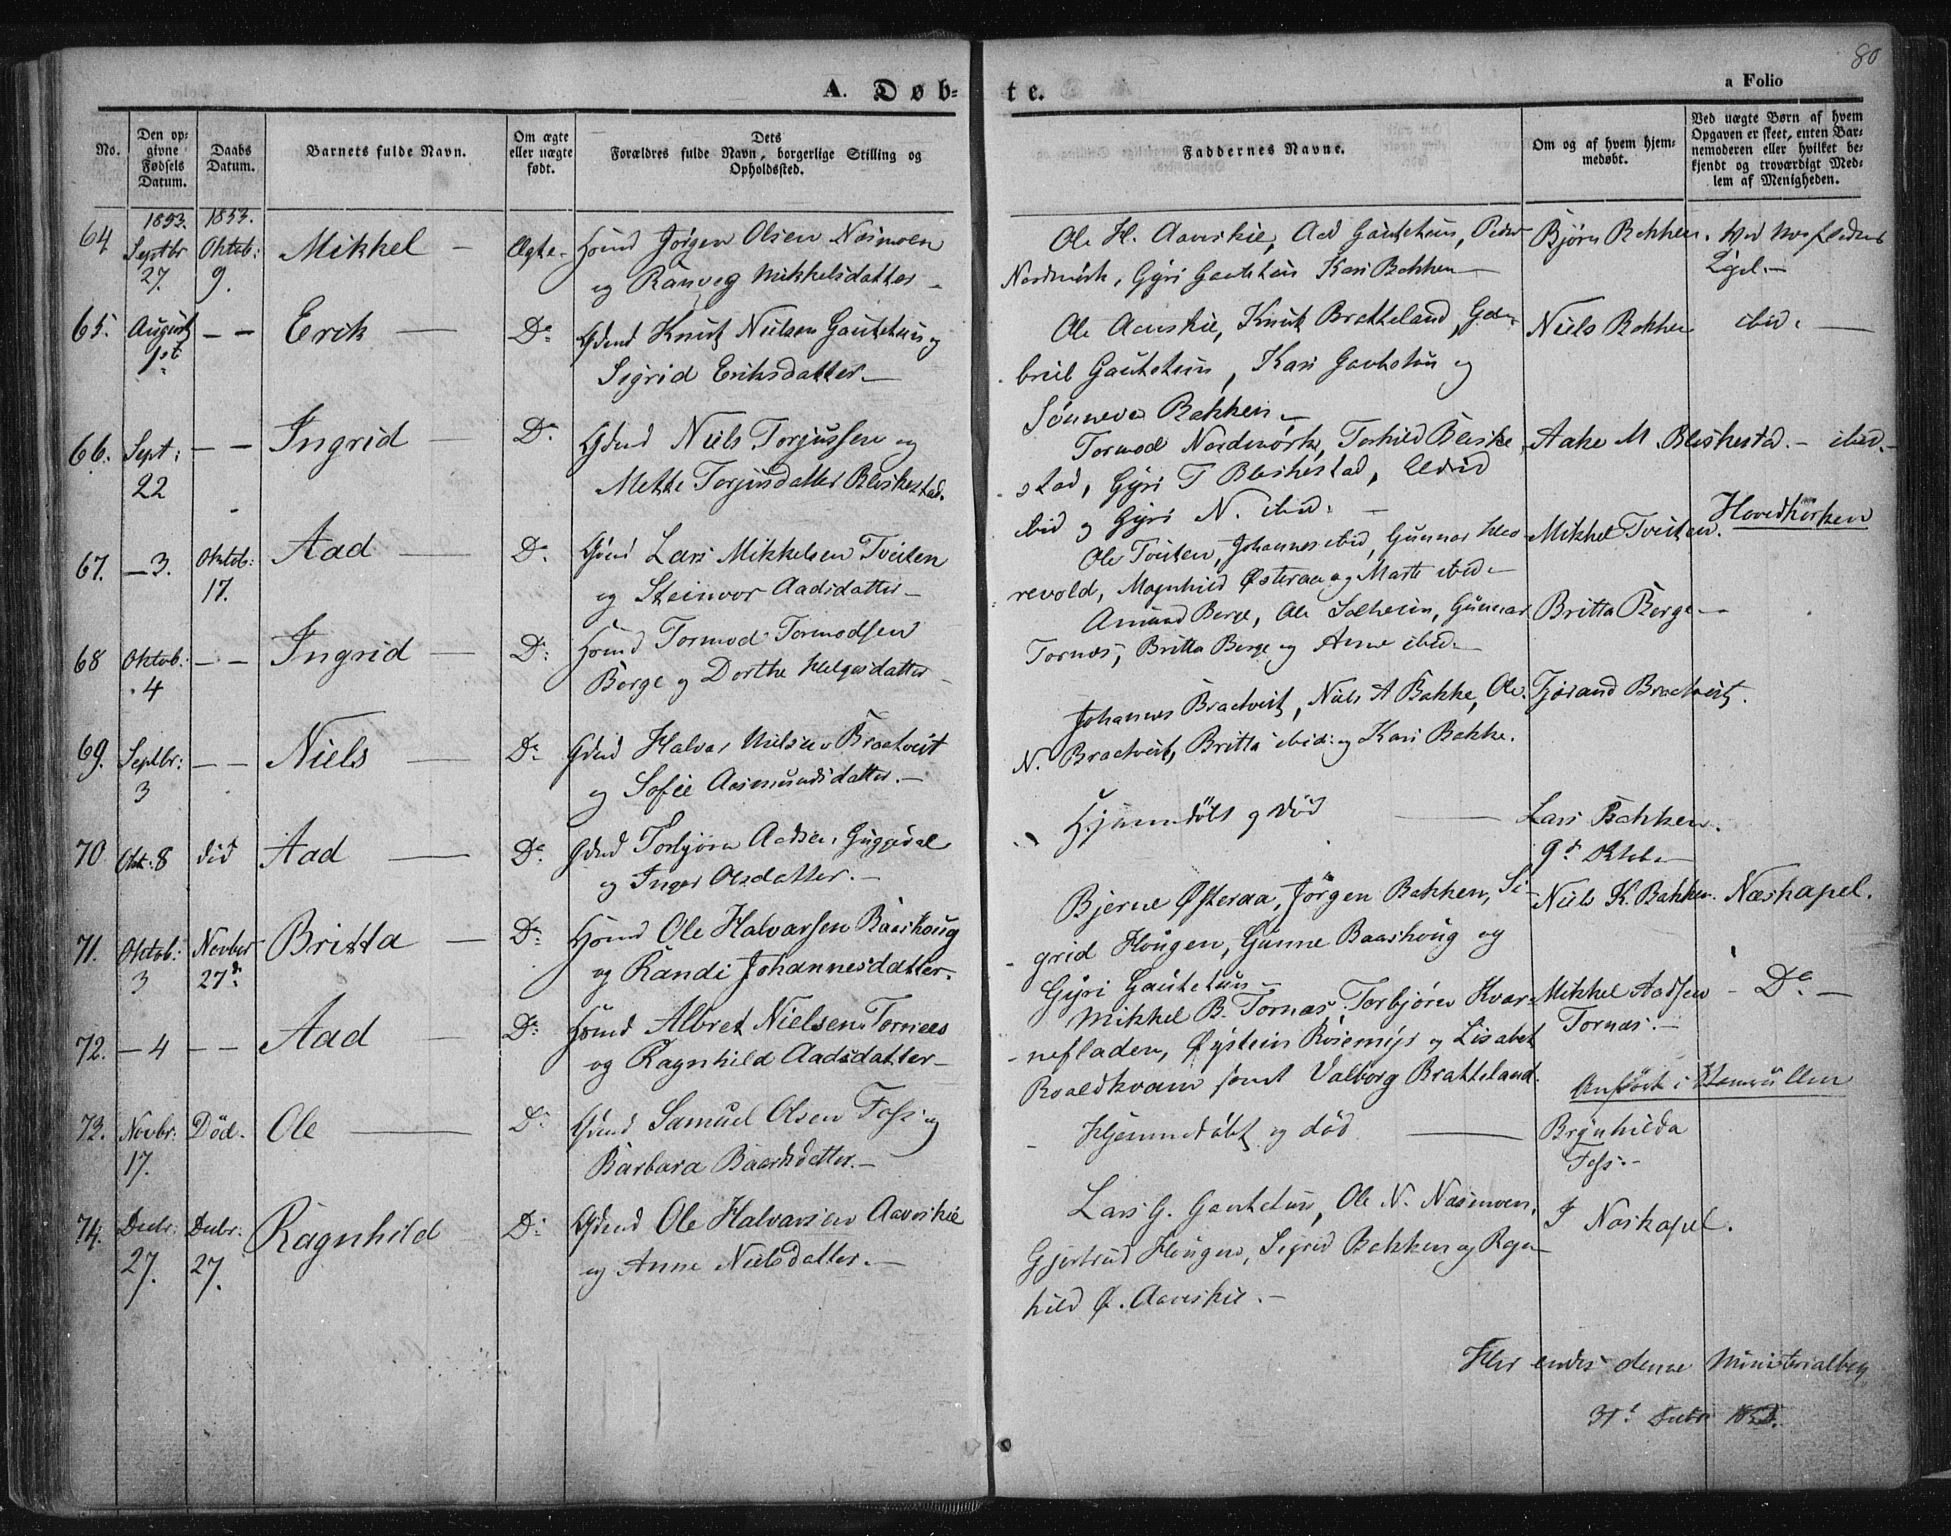 80
A. Døb- te.
a Folio
No.
Den op-
givne
Fødsels
Datum.
Daabs
Datum.
Barnets fulde Navn.
Om ægte
eller uægte
født.
Dets
Forældres fulde Navn, borgerlige Stilling og
Opholdssted.
Faddernes Navne.
Om og af hvem hjem-
medøbt.
Ved uægte Børn af hvem
Opgaven er skeet, enten Bar-
nemoderen eller hvilket be-
kjendt og troværdigt Med-
lem af Menigheden.
1853. 1853.
64 Septbr 27. Oktob: 9. Mikkel — Ægte. Hsmd Jørgen Olsen Næsmoen
og Ranveg Mikkelsdatter —
Ole H. Aaneskie, Aad Gautetun, Peder
Nordmørk, Gyri Gautetun Kari Bakken —
Bjørn Bakken.
65. August — — Erik — Do Gdmd Knut Nielsen Gautetun og
Sigrid Eriksdatter. —
Ole Aaneskie, Knut Bratteland, Ga-
briel Gautetun, Kari Gautetun og
Sønneva Bakken —
Niels Bakken ibid. —
66. Sept: 22 — — Ingrid — Do Gdmd Niels Torjussen og
Mette Torjusdatter Bleskestad.
Tormod Nordmörk, Torkild Bleske
stad, Gyri T Bleskestad, Eldrid
ibid og Gyri N. ibid. —
Aake M. Bleskestad. — ibid. —
67. — 3. Oktob: 17. Aad — Do. Gdmd Lars Mikkelsen Tveiten
og Steinvor Aadsdatter —
Ole Tveiten, Johannes ibid, Gunnar
revold, Magnhild Østeraa og Marte ibid —
Mikkel Tveiten. Hovedkirken
68 Oktob: 4 — — Ingrid — Do: Hsmd Tormod Tormodsen
Berge og Dorthe Helgesdatter —
Amund Berge, Ole Solheim, Gunnar
Tornæs, Britta Berge og Anne ibid —
Britta Berge —
69. Septbr: 3 — — Niels — Do Gdmd Halvar Nielsen Braatveit
og Sofie Aasmundsdatter. —
Johannes Braatveit, Niels A Bakke, Ole
N. Braatveit, Britta ibid: og Kari Bakke.
Tjørand Braatveit.
70 Okt: 8 död Aad — Do. Gdmd Torbjörn Aadsen Guggedal
og Inger Olsdatter. —
Hjemmdöbt og död — Lars Bakken.
9d Oktob —
71. Oktob: 3 Novbr 27d: Britta — Do: Hsmd Ole Halvarsen Baashoug
og Randi Johannesdatter.
Bjerne Østeraa, Jörgen Bakken, Si-
grid Hougen, Gunne Baashoug og
Gyri Gautetun —
Niels K. Bakken. Næskapel.
72. — 4 — — Aad — Do: Hsmd Albret Nielsen Tornæs
og Ragnhild Aadsdatter —
Mikkel B. Tornæs, Torbjörn Kvar-
nefladen, Øystein Roiemyr og Lisabet
Roaldkvam samt Valborg Bratteland.
Mikkel Aadsen — Do —
Tornæs. —
73. Novbr: 17. Död. Ole — Do Gdmd Samuel Olsen Foss og
Barbara Baardsdatter. —
Hjemmedöbt og död — Brynhilda
Foss. —
74. Decbr: 27. Decbr: 27. Ragnhild Do: Gdmd Ole Halvarsen Aaneskie
og Anne Nielsdatter. —
Lars G. Gautetun, Ole N. Næsmoen,
Gjertrud Hougen, Sigrid Bakken og Ragn-
hild Ø. Aaneskie. —
I Næskapel.
Her endes denne Ministerialbog
31d Decbr 1853.